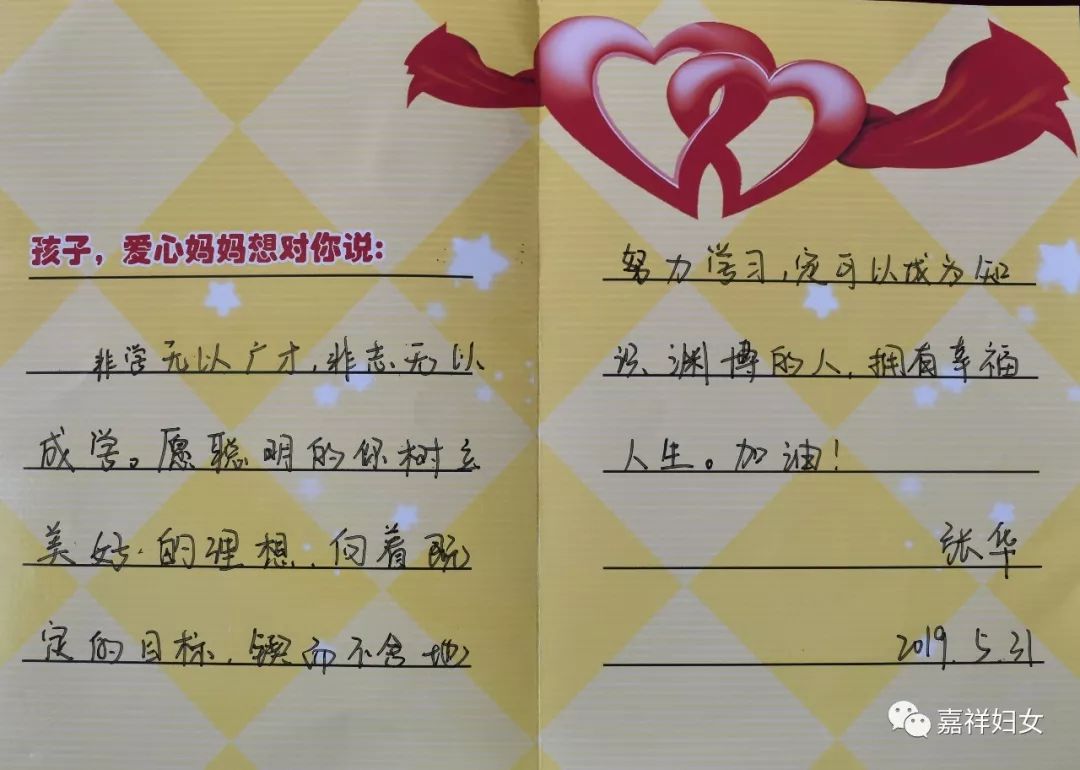 孩子，爱心妈妈想对你说：
非学无以广才，非志无以
成学。愿聪明的你树立
美好的理想，向着既
定的目标，锲而不舍地
努力学习，定可以成为知
识渊博的人，拥有幸福
人生。加油！
张华
2019.5.31
嘉祥妇女